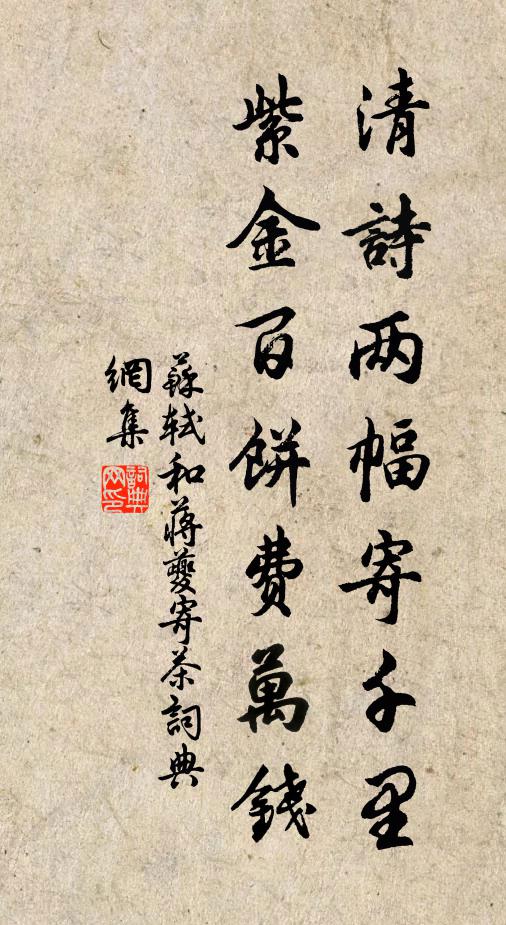 清詩两幅寄千里
紫金百餅費萬錢
蘇軾和蔣夔寄茶詞典
網集
詞典网印